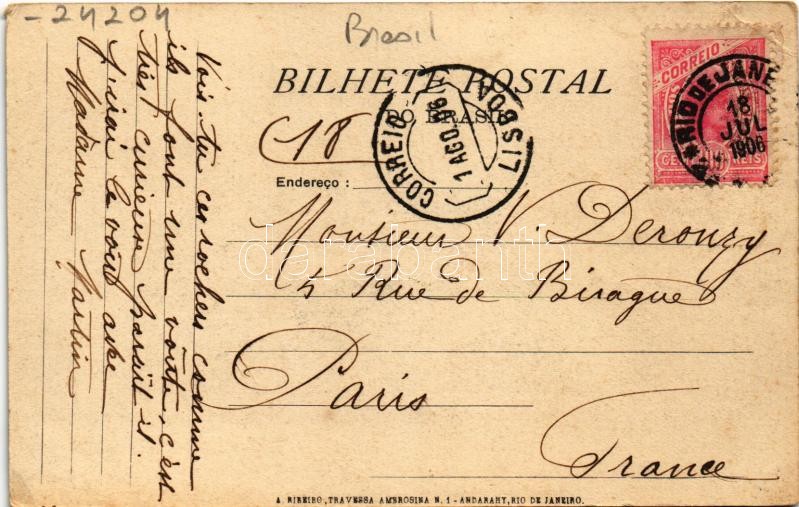 -24204
Brasil
BILHETE POSTAL
DO BRASIL
(18)
Endereço :
CORREIO
LISBOA
1 AGO.06
CORREIO
REIS
RIO DE JANE
18
JUL
1906
Monsieur V. Derouzy
5 Rue de Birague
Paris
France
Vois-tu ces rochers comme
ils font une voûte, c'est
très curieux paraît il.
J'irai le voir avec
Madame Martin
darabanth
A. RIBEIRO, TRAVESSA AMBROSINA N. 1 - ANDARAHY, RIO DE JANEIRO.